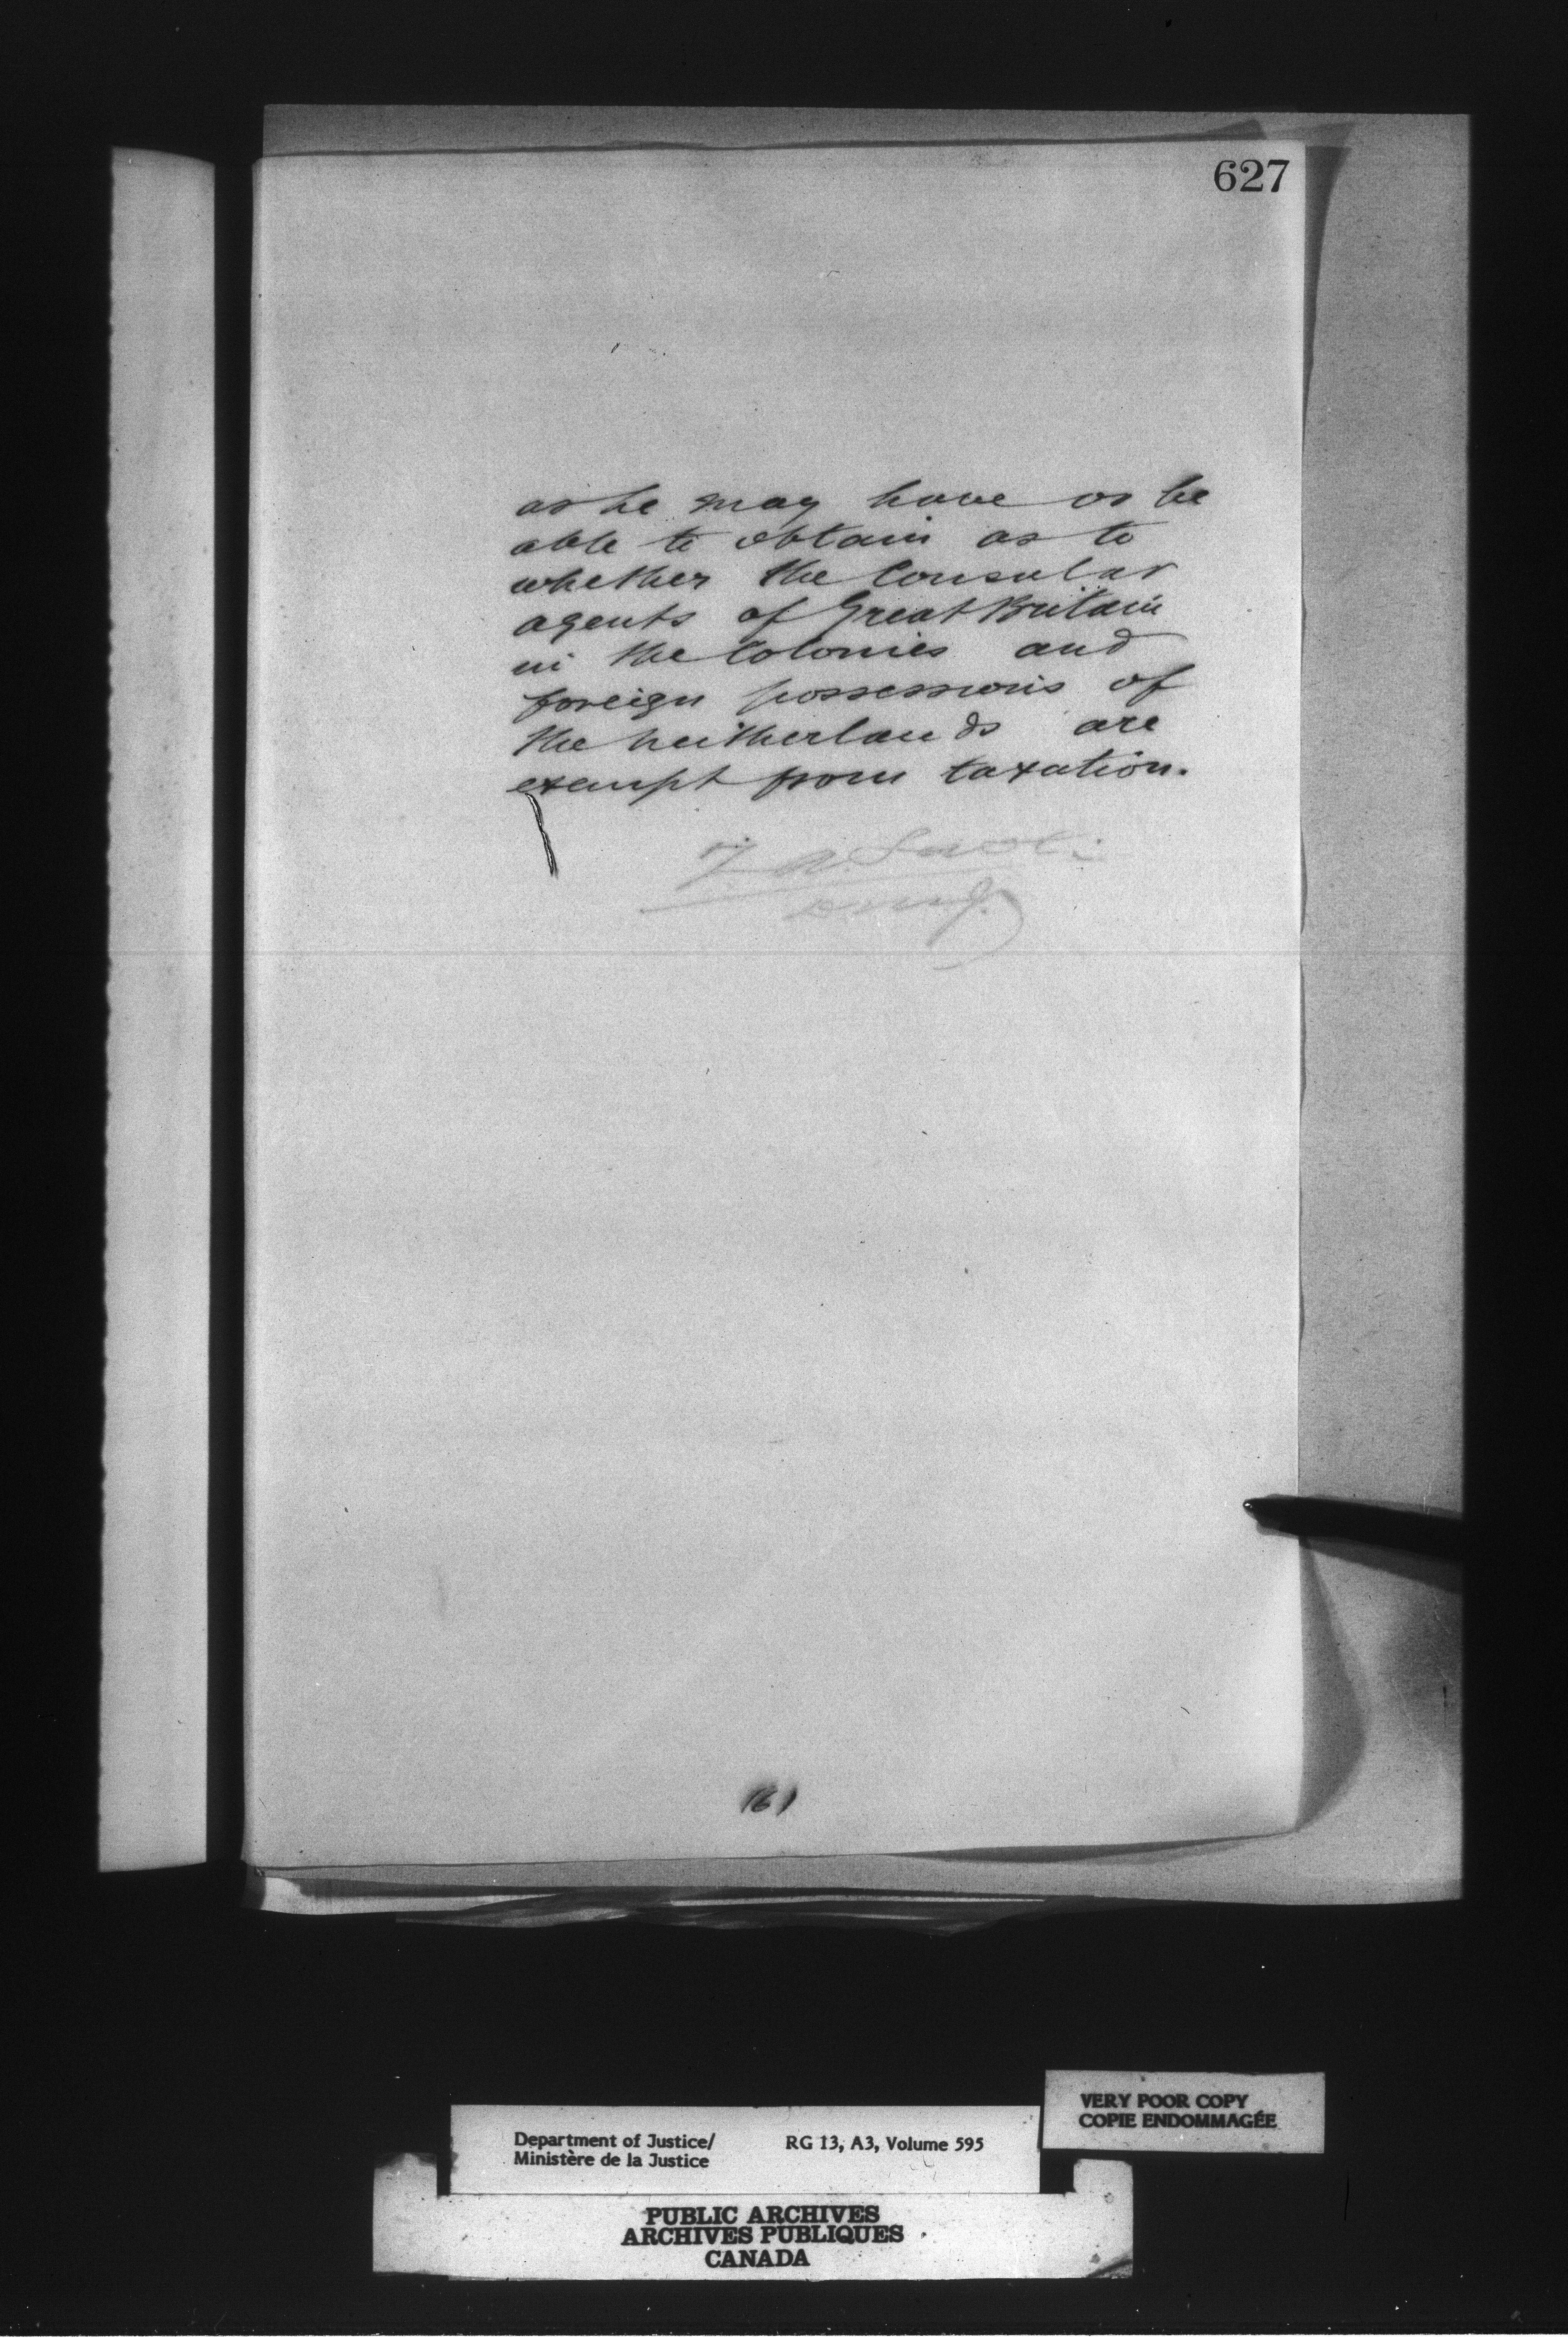 627
as he may have or be
able to obtain as to
whether the Consular
agents of Great Britain
in the Colonies and
foreign possessions of
the neitherlands are
exempt from taxation.
(6)
VERY POOR COPY
COPIE ENDOMMAGÉE
Department of Justice/ RG 13, A3, Volume 595
Ministère de la Justice
PUBLIC ARCHIVES
ARCHIVES PUBLIQUES
CANADA